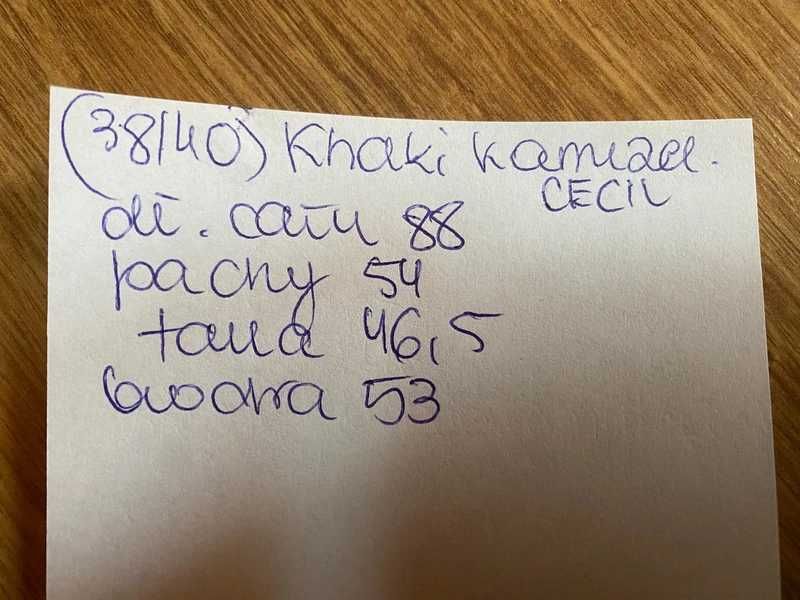 (38/40) Khaki kamizel.
CECIL
dł. całk 88
pachy 54
talia 46,5
biodra 53